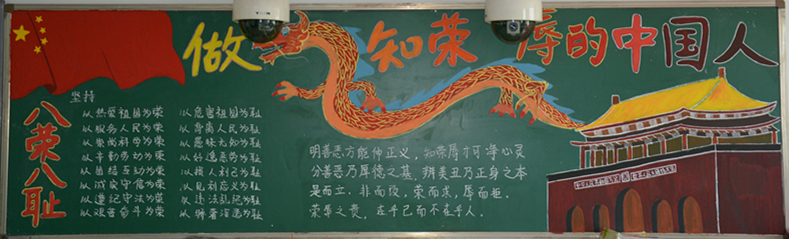 做 知荣 辱的中国人
八荣八耻
坚持
以热爱祖国为荣 以危害祖国为耻
以服务人民为荣 以背离人民为耻
以崇尚科学为荣 以愚昧无知为耻
以辛勤劳动为荣 以好逸恶劳为耻
以团结互助为荣 以损人利己为耻
以诚实守信为荣 以见利忘义为耻
以遵纪守法为荣 以违法乱纪为耻
以艰苦奋斗为荣 以骄奢淫逸为耻
明善恶方能伸正义，知荣辱才可净心灵
分善恶乃厚德之基 辨美丑乃正身之本
是而立，非而伐，荣而求，辱而拒
荣辱之责，在乎己而不在乎人。